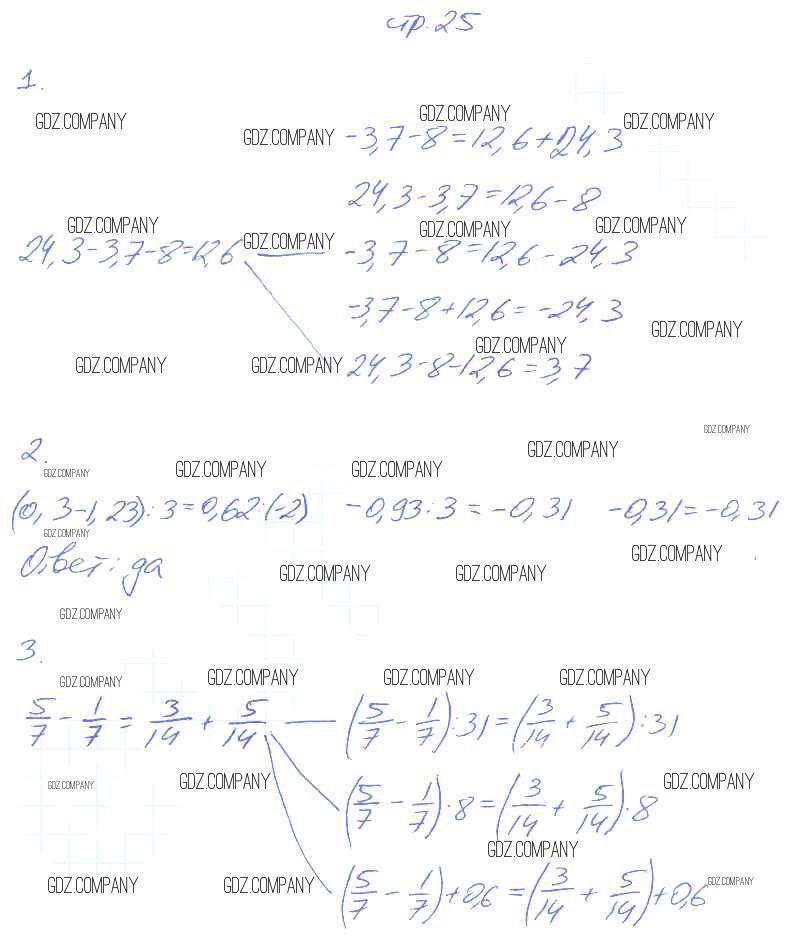 стр. 25
1.
GDZ.COMPANY GDZ.COMPANY GDZ.COMPANY GDZ.COMPANY
-3,7-8=12,6+24,3
24,3-3,7=12,6-8
GDZ.COMPANY GDZ.COMPANY GDZ.COMPANY GDZ.COMPANY
24,3-3,7-8=12,6 -3,7-8=12,6-24,3
-3,7-8+12,6=-24,3
GDZ.COMPANY GDZ.COMPANY GDZ.COMPANY GDZ.COMPANY
24,3-8-12,6=3,7
2.
GDZ.COMPANY GDZ.COMPANY GDZ.COMPANY GDZ.COMPANY GDZ.COMPANY
(0,3-1,23):3=0,62:(-2) -0,93:3=-0,31 -0,31=-0,31
GDZ.COMPANY
Ответ: да
GDZ.COMPANY GDZ.COMPANY GDZ.COMPANY
GDZ.COMPANY
3.
GDZ.COMPANY GDZ.COMPANY GDZ.COMPANY GDZ.COMPANY
5/7 - 1/7 = 3/14 + 5/14 (5/7 - 1/7):31=(3/14 + 5/14):31
GDZ.COMPANY GDZ.COMPANY GDZ.COMPANY
(5/7 - 1/7)·8=(3/14 + 5/14)·8
GDZ.COMPANY
GDZ.COMPANY GDZ.COMPANY GDZ.COMPANY
(5/7 - 1/7)+0,6=(3/14 + 5/14)+0,6